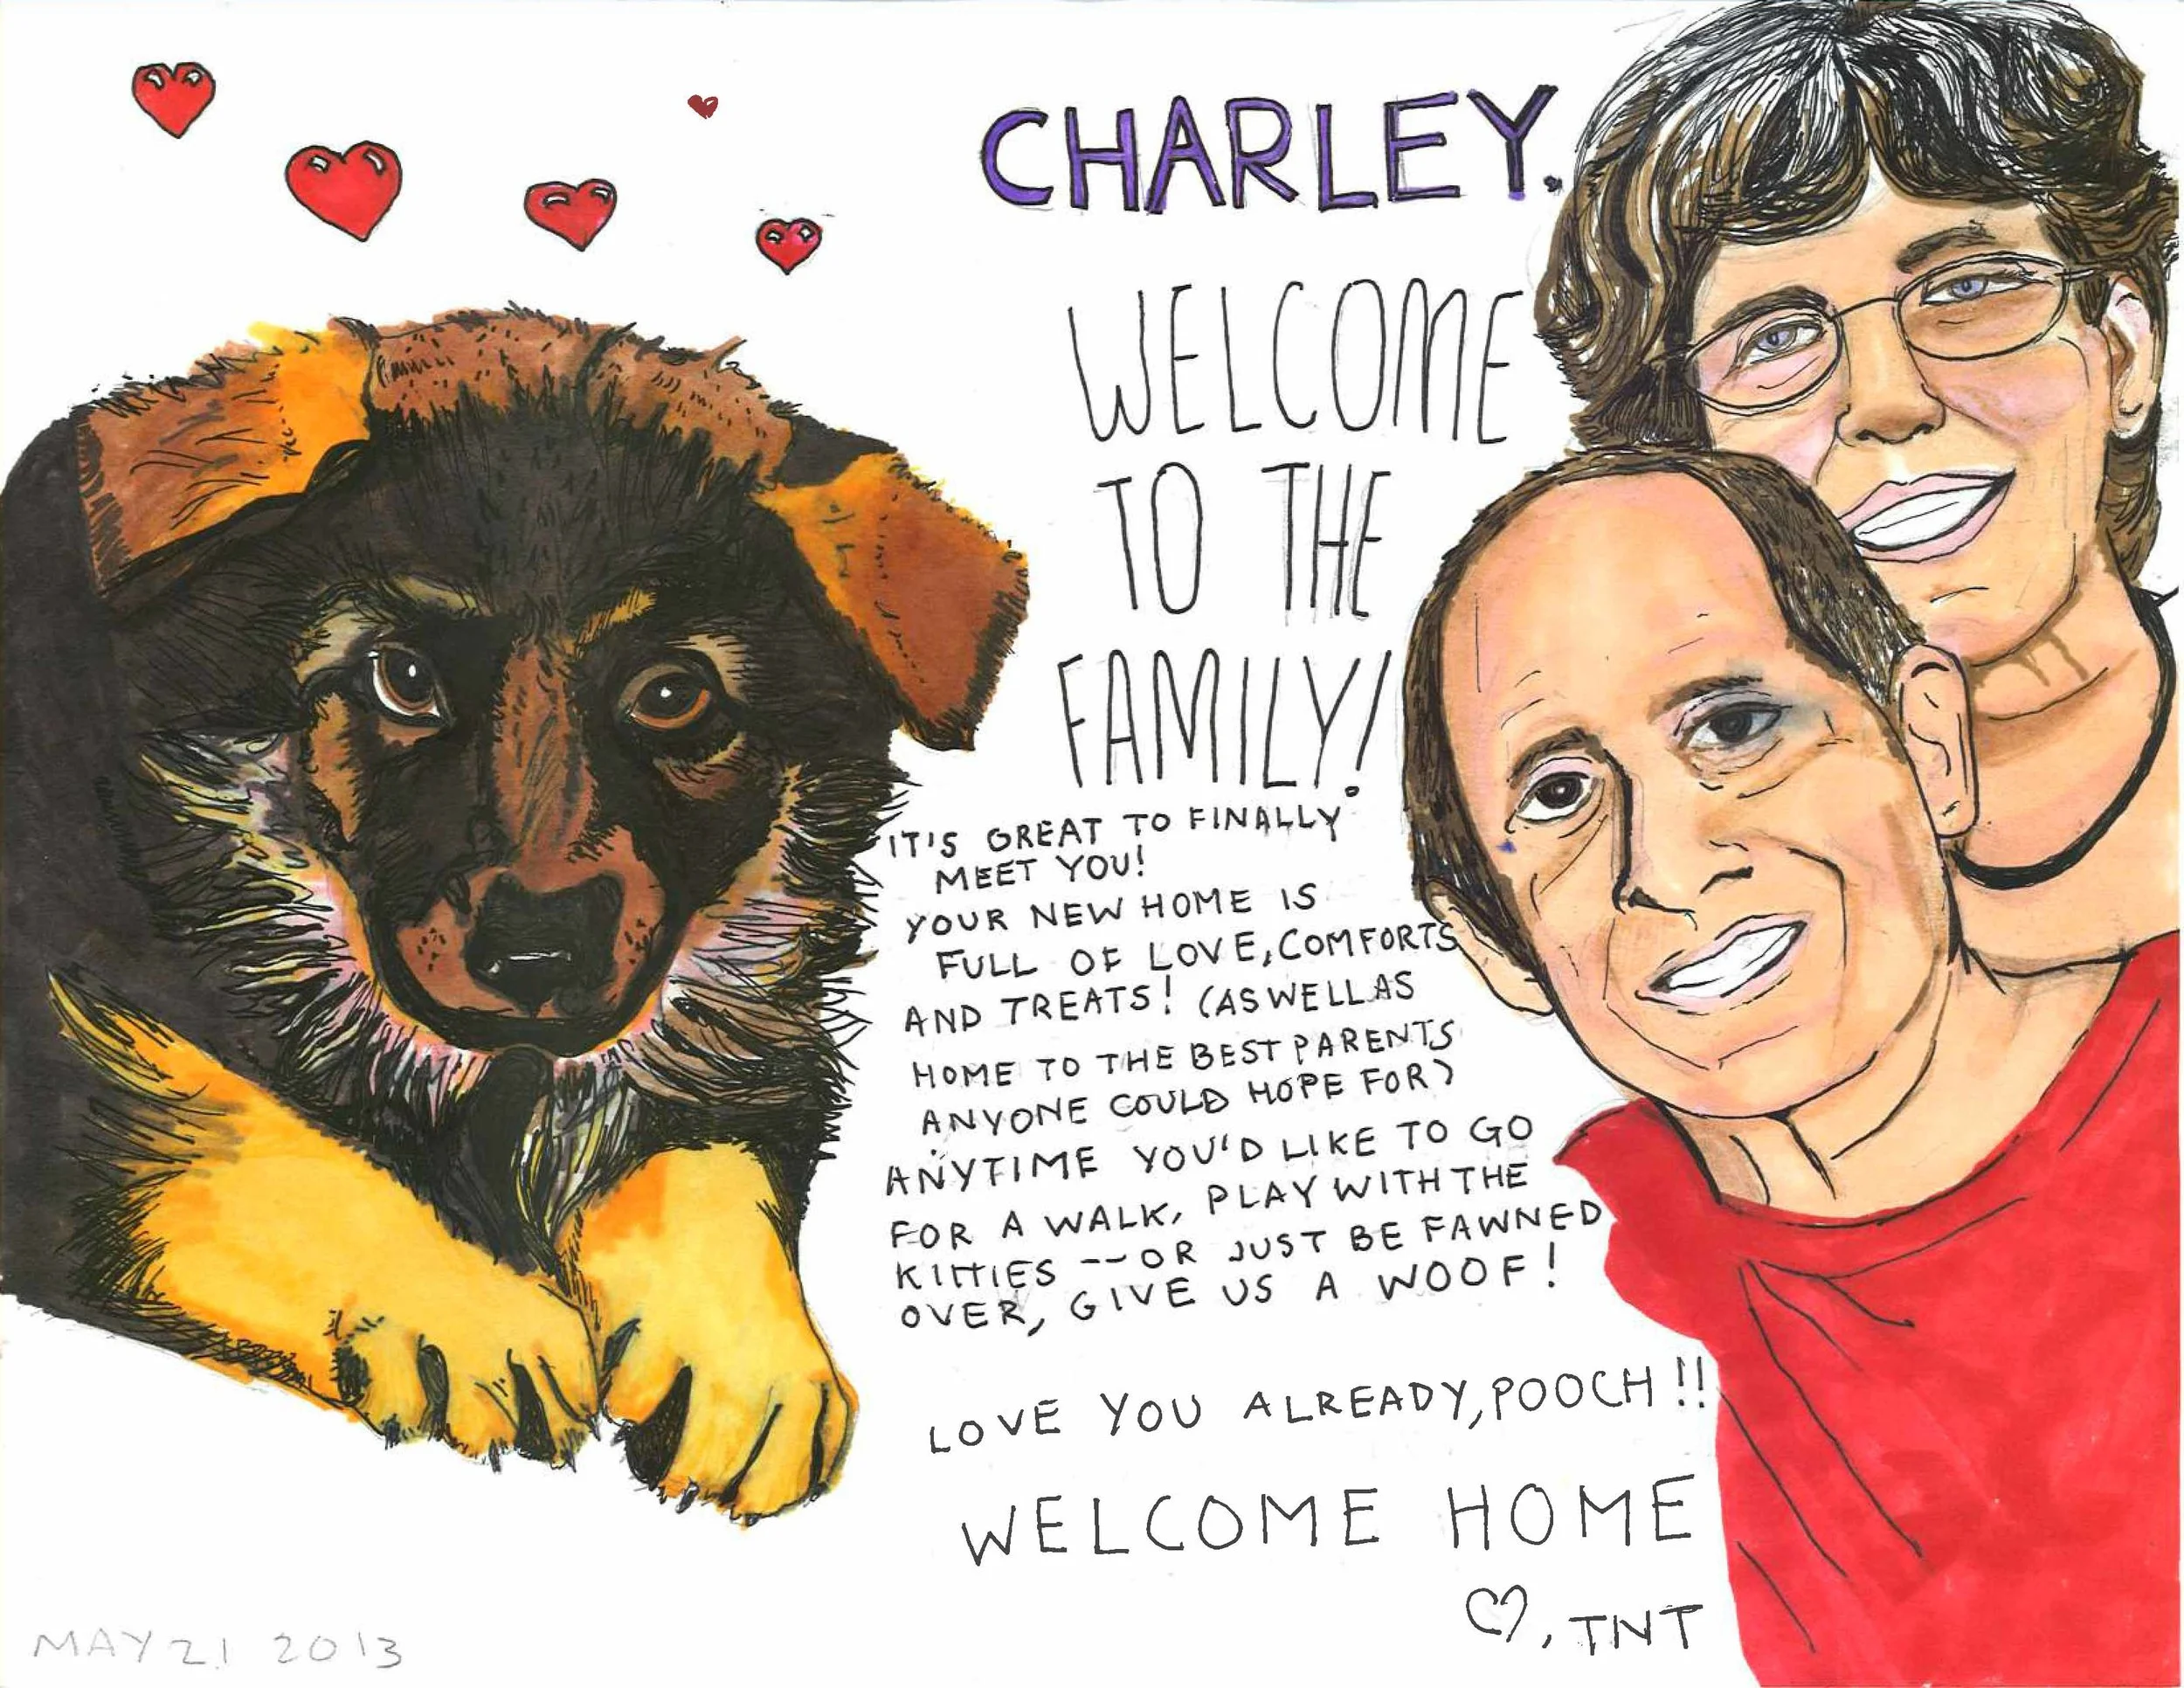 CHARLEY.
WELCOME
TO THE
FAMILY!
IT'S GREAT TO FINALLY
MEET YOU!
YOUR NEW HOME IS
FULL OF LOVE, COMFORTS
AND TREATS! (AS WELL AS
HOME TO THE BEST PARENTS
ANYONE COULD HOPE FOR)
ANYTIME YOU'D LIKE TO GO
FOR A WALK, PLAY WITH THE
KITTIES -- OR JUST BE FAWNED
OVER, GIVE US A WOOF!
LOVE YOU ALREADY, POOCH!!
WELCOME HOME
♡, TNT
MAY 21 2013